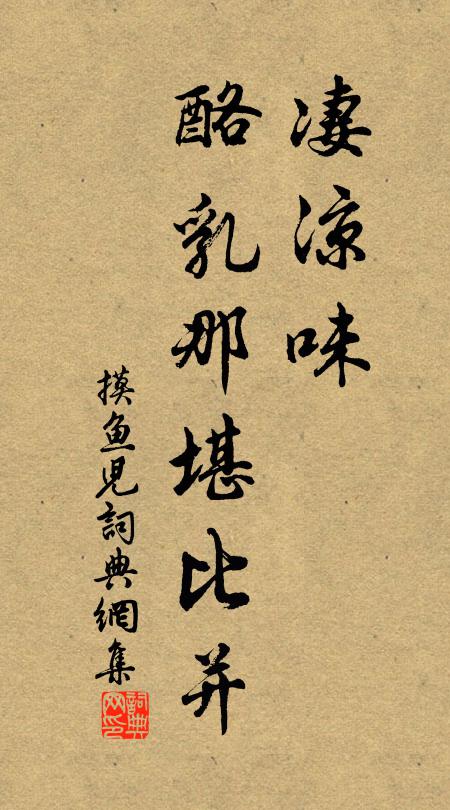 凄涼味
酪乳那堪比并
摸魚児詞典網集
詞典网印